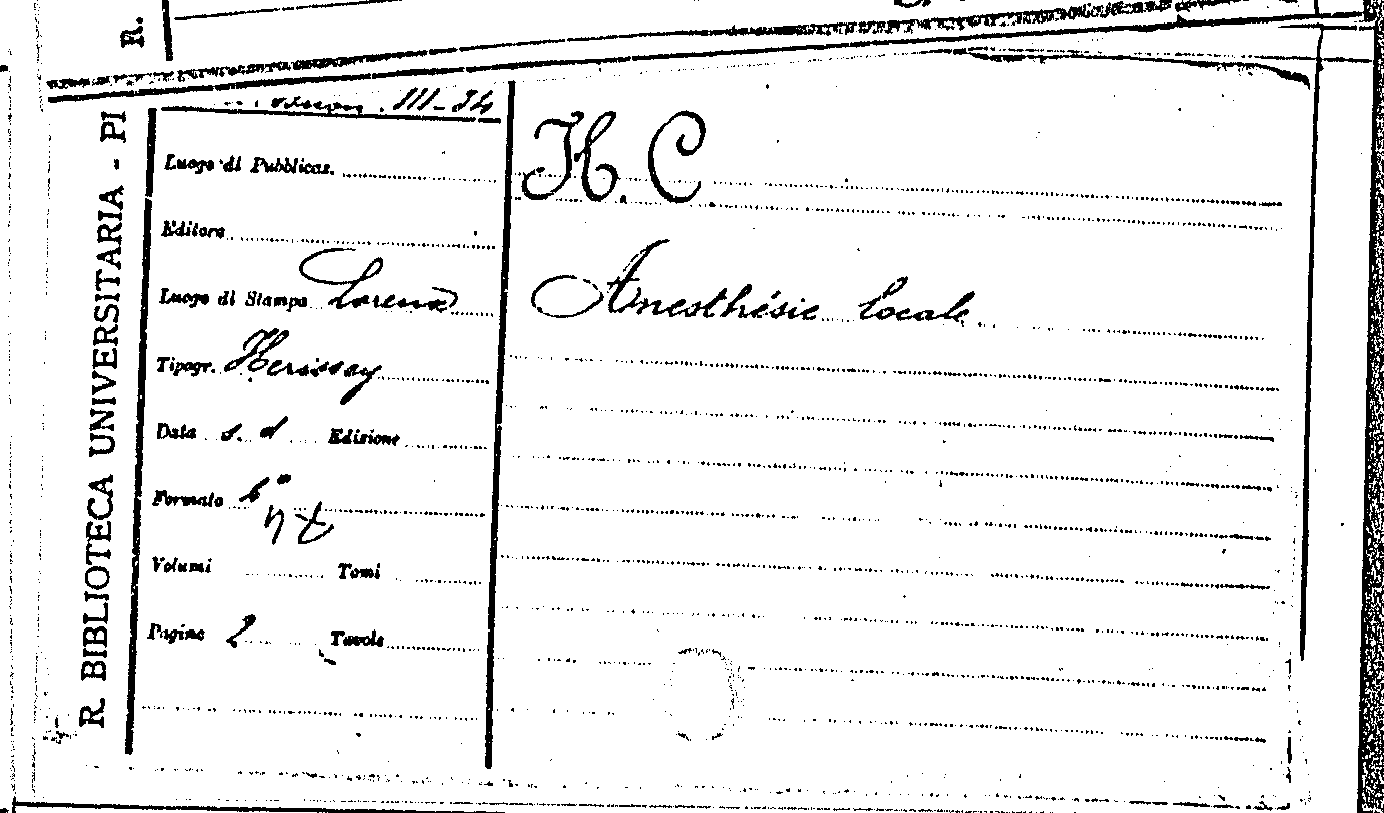 R.
R. BIBLIOTECA UNIVERSITARIA - PI
III-34
H. C.
Luogo di Pubblicaz.
Editore
Luogo di Stampa Lorenz
Anesthésie locale
Tipogr. Herissey
Data s. d Edizione
Formato
Volumi Tomi
Pagine 2 Tavole